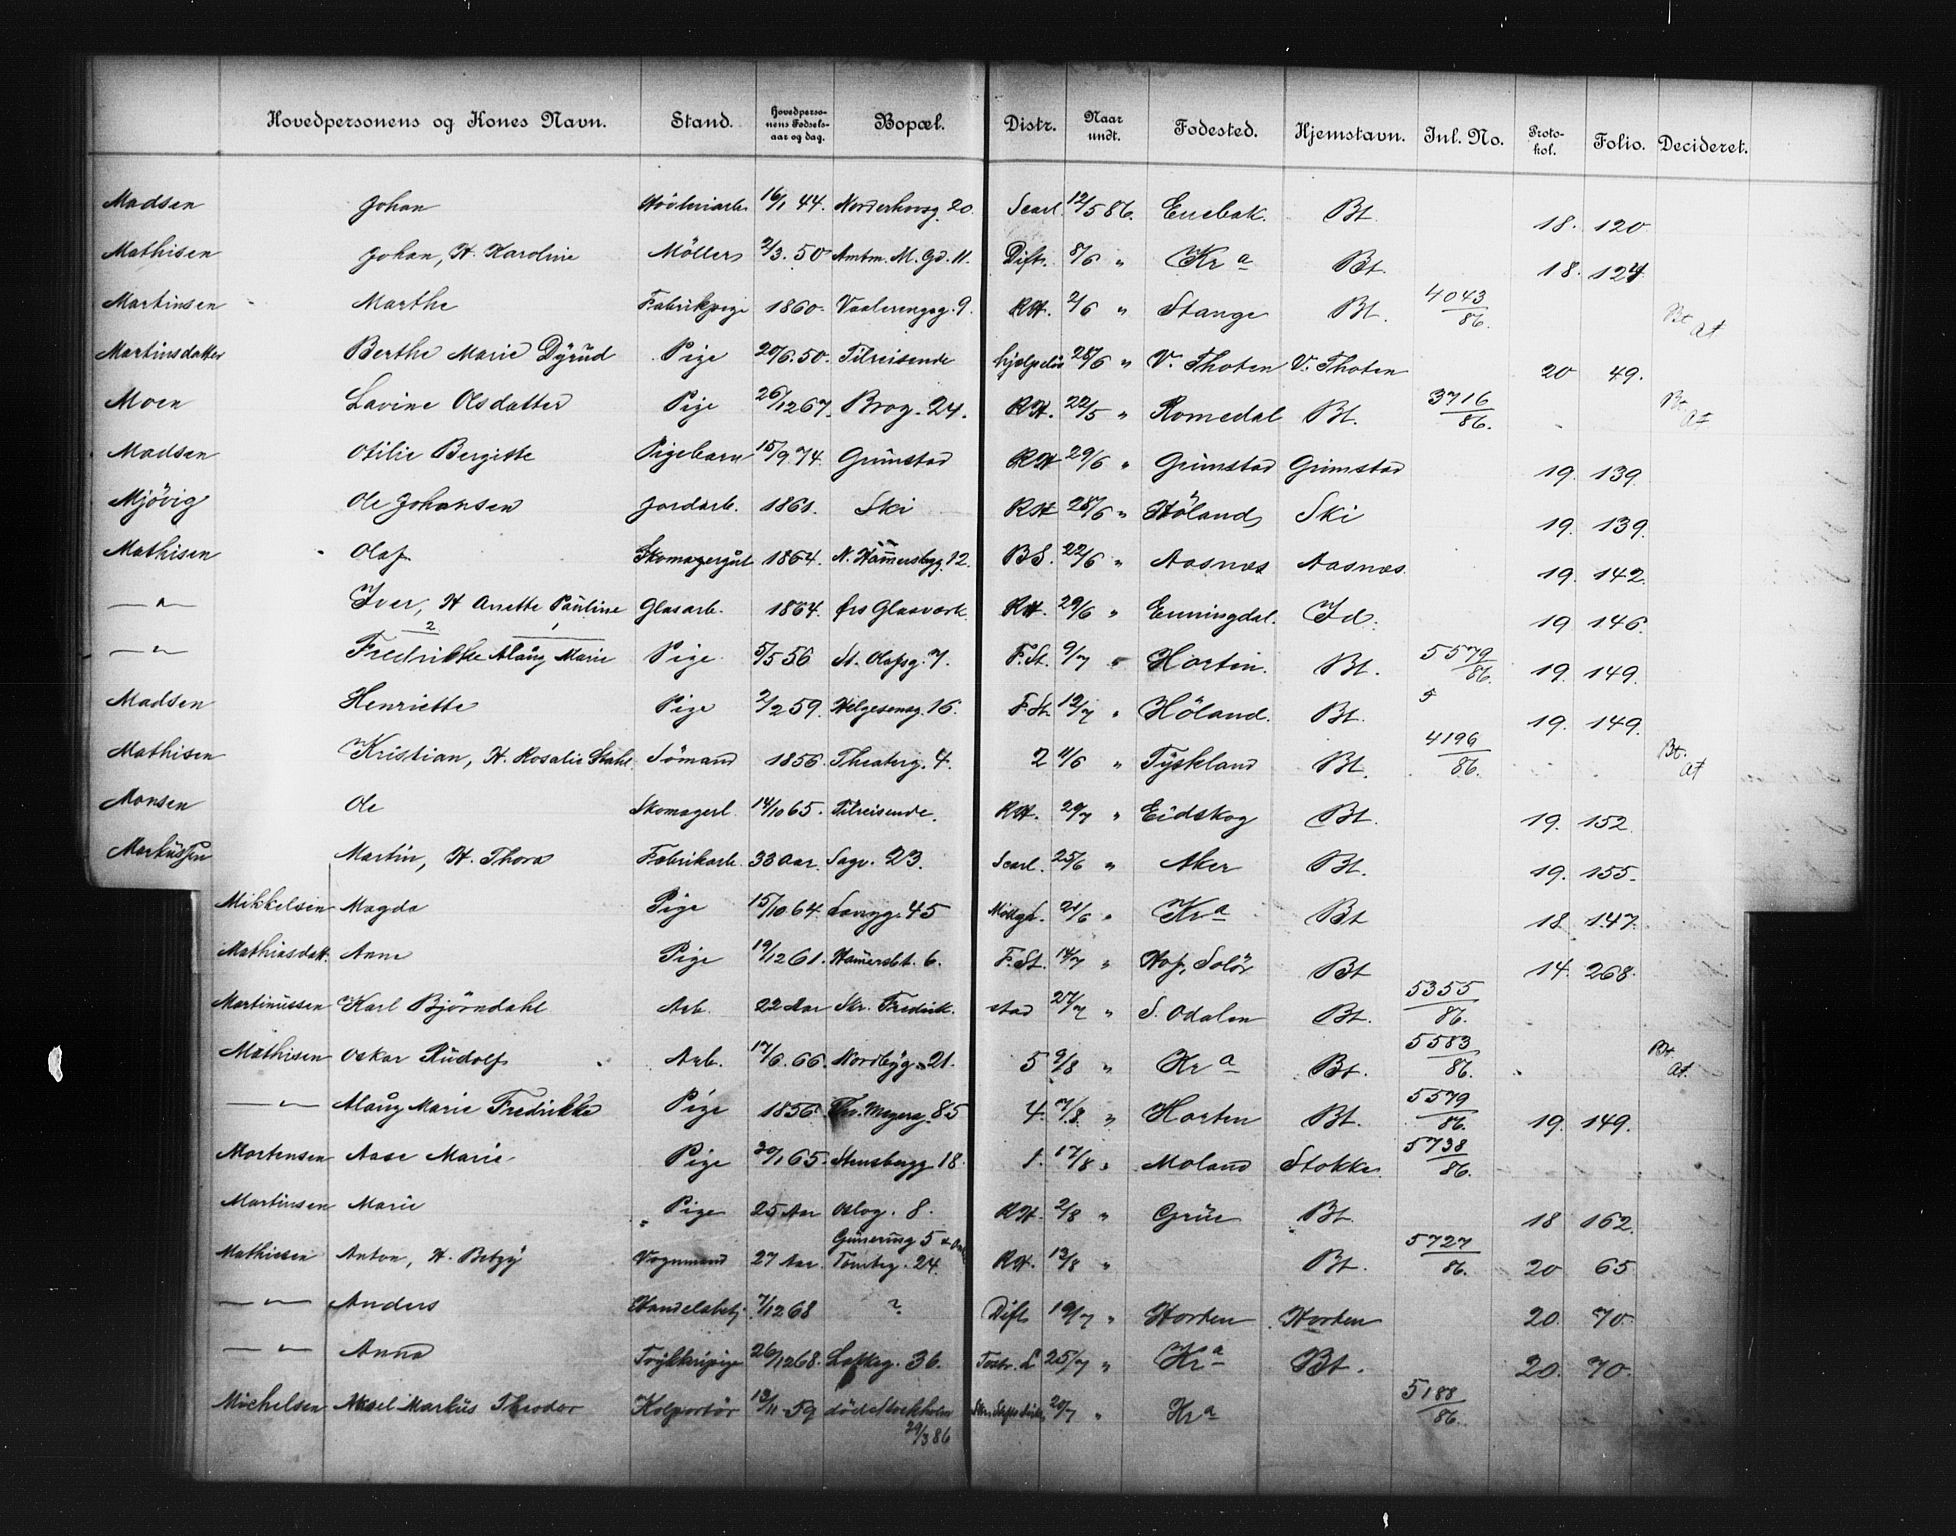 Hovedpersonens og Kones Navn. Stand. Hovedperso-nens Fødsels-aar og dag. Bopæl. Distr. Naar undt. Fødested. Hjemstavn. Inl. No. Proto-kol. Folio. Decideret.
Madsen Johan 16/1 44. Norderhovsg. 20. Scarl. 12/5 86. Enebak. Bt. 18. 120
Mathisen Johan, H. Karoline Möllers 2/3. 50 Amtm. M. Gd. 11. Dift. 8/6 " Kr a Bt. 18. 124
Martinsen Marthe Fabrikpige 1860. Vaalerengsg. 9. RH. 2/6 " Stange Bt. 4043/86. Bt. at
Martinsdatter Berthe Marie Dÿrud Pige 20/6. 50. Tilreisende hjælpeløs 28/6 " V. Thoten V. Thoten 20 49.
Moen Lavine Olsdatter Pige 26/12 67. Brog. 24. RH. 22/5 " Romedal Bt. 3716/86. Bt. at
Madsen Otilie Bergitte Pigebarn 15/9 74. Grimstad RH 29/6 " Grimstad Grimstad 19. 139.
Mjövig Ole Johansen Jordarb. 1861. Ski RH 28/6 " Höland Ski 19. 139.
Mathisen Olaf 1864. N. Hammersbg. 12. BS. 22/6 " Aasnæs Aasnæs. 19. 142.
— " — Iver, H. Anette Pauline Glasarb. 1864. Øis Glasværk. RH. 29/6 " Enningdal. Id. 19 146.
— " — Fredrikke Alaug Marie Pige 5/5 56 St. Olafsg. 7. F. St. 9/7 " Horten. Bt. 5579/86. 19. 149.
2 1
Madsen Henriette Pige 2/2 59. Helgesensg. 16. F. St. 12/7 " Höland. Bt. 5 19. 149.
Mathisen Kristian, H. Rosalie Stahl. Sömand 1856. Theaterg. 4. 2 4/6 " Tÿskland Bt. 4196/86. Bt. at
Monsen Ole Skomagerl. 14/10 65. Tilreisende. RH. 20/7 " Eidskog Bt. 19. 152.
Markussen Martin, H. Thora Fabrikarb. 33 Aar. Sagv. 23. Scarl. 25/6 " Aker Bt. 19. 155.
Mikkelsen Magda Pige 15/10 64. Langg. 45 21/6 " Kr a Bt 18. 147.
Mathiasdatt. Anne Pige 19/12 61. 6. F. St. 14/7 " Hof, Solör Bt 14. 268.
Martinussen Karl Björndahl Arb. 22 Aar Skr. Fredrik. stad 27/7 " S. Odalen Bt. 5355/86.
Mathisen Oskar Rudolf Arb. 17/6. 66. Nordbÿg. 21. 5 9/8 " Kr a Bt. 5583/86. Bt. at.
— " — Alaug Marie Fredrikke Pige 1856. Th. Meyersg. 85 4. 7/8. " Horten Bt. 5579/86. 19. 149.
Mortensen Aase Marie Pige 30/1 65. Stensbergg. 18. 1. 17/8 " Moland Stokke. 5738/86.
Martinsen Marie Pige 25 Aar Oslog. 8. RH. 2/8 " Grue Bt. 18 162.
Mathisen Anton, H. Betzÿ Vognmand 27 Aar Grünering 5 Tomteg. 24. RH. 13/8 " Bt. 5727/86. 20 65
— " — Anders Handelsbetj. 7/12 68 ? Dift 19/7 " Horten Horten 20. 70.
— " — Anna 26/12 68. 36. Tostr. L. 25/7 " Kr a Bt. 20. 70.
Michelsen Aksel Markus Theodor Kolportör 13/11 59 död Stockholm 20/7 " Kr a 5188/86.
29/3 86